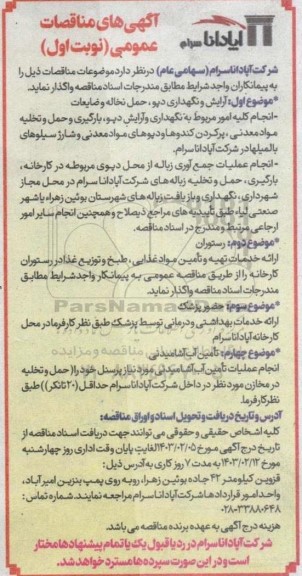 آپادانا سرام
آگهی های مناقصات
عمومی (نوبت اول)
شرکت آپادانا سرام (سهامی عام) در نظر دارد موضوعات مناقصات ذیل را
به پیمانکاران واجد شرایط مطابق مندرجات اسناد مناقصه واگذار نماید.
*موضوع اول: آرایش و نگهداری دپو، حمل نخاله و ضایعات
- انجام کلیه امور مربوط به نگهداری و آرایش دپو، بارگیری و حمل و تخلیه
مواد معدنی، پر کردن کندوها و دپوهای مواد معدنی و شارژ سیلوهای
بالمیلها در شرکت آپادانا سرام.
- انجام عملیات جمع آوری زباله از محل دپوی مربوطه در کارخانه،
بارگیری، حمل و تخلیه زباله های شرکت آپادانا سرام در محل مجاز
شهرداری، نگهداری و بازیافت زباله های شهرستان بوئین زهراء باشهر
صنعتی لیا، طبق تأییدیه های مراجع ذیصلاح و همچنین انجام سایر امور
ارجاعی مرتبط و مندرج در اسناد مناقصه.
*موضوع دوم: رستوران
ارائه خدمات تهیه و تأمین مواد غذایی، طبخ و توزیع غذا در رستوران
کارخانه را از طریق مناقصه عمومی به پیمانکار واجد شرایط مطابق
مندرجات اسناد مناقصه واگذار نماید.
*موضوع سوم: حضور پزشک
ارائه خدمات بهداشتی و درمانی توسط پزشک طبق نظر کارفرما در محل
کارخانه آپادانا سرام
*موضوع چهارم: تأمین آب آشامیدنی
انجام عملیات تأمین آب آشامیدنی مورد نیاز پرسنل خود را (حمل و تخلیه
در مخازن مورد نظر در داخل شرکت آپادانا سرام حداقل (۲۰ تانکر)) طبق
نظر کارفرما.
آدرس و تاریخ دریافت و تحویل اسناد و اوراق مناقصه:
کلیه اشخاص حقیقی و حقوقی می توانند جهت دریافت اسناد مناقصه از
تاریخ درج آگهی مورخ ۱۴۰۳/۰۲/۰۵ لغایت پایان وقت اداری روز چهارشنبه
مورخ ۱۴۰۳/۰۲/۱۲ به مدت ۷ روز کاری به آدرس ذیل:
قزوین کیلومتر ۴۲ جاده بوئین زهرا، روبه روی پمپ بنزین امیرآباد،
واحد امور قراردادها شرکت آپادانا سرام مراجعه نمایند. شماره تماس:
۰۲۸-۳۳۸۸۰۶۴۸
هزینه درج آگهی به عهده برنده مناقصه می باشد.
شرکت آپادانا سرام در رد یا قبول یک یا تمام پیشنهادها مختار
است و در این صورت سپرده ها مسترد خواهد شد.